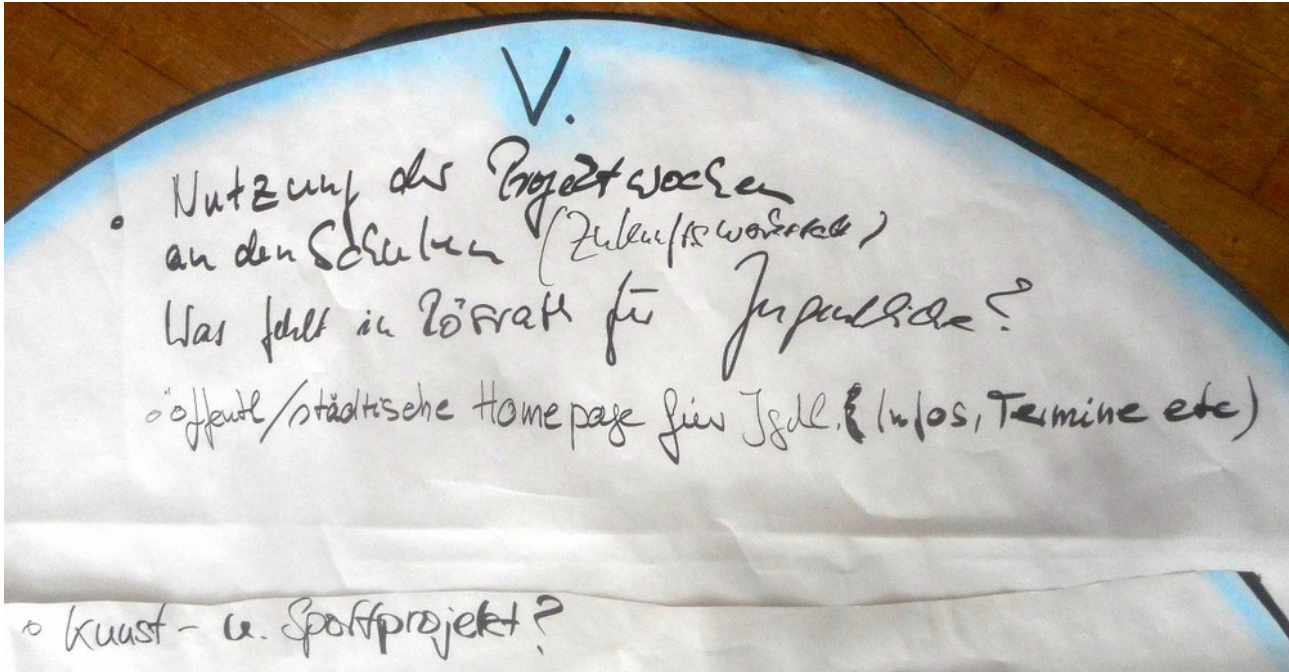 V.
• Nutzung der Projektwochen
an den Schulen (Zukunftswerkstatt)
Was fehlt in Rösrath für Jugendliche?
◦ öffentl/städtische Homepage für Jgdl. (Infos, Termine etc)
◦ Kunst- u. Sportprojekt?